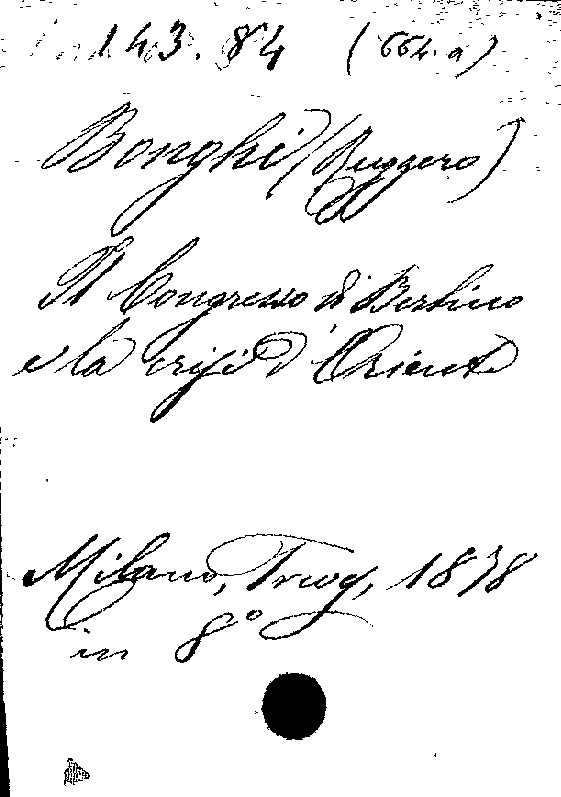 143.84 (664.a)
Bonghi (Ruggero)
Il Congresso di Berlino
e la crisi d'Oriente
Milano, Treves, 1878
in 8°